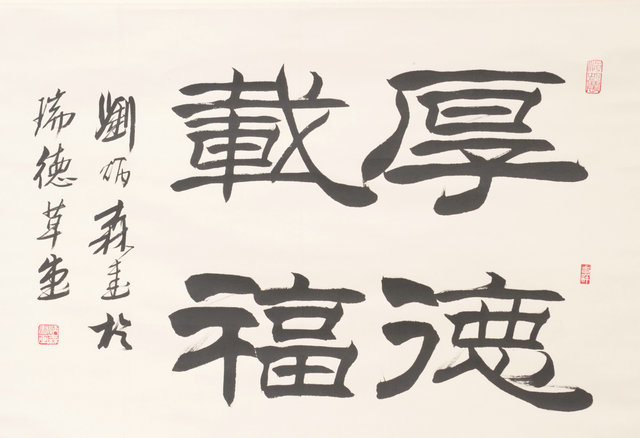 厚德
載福
劉炳森書於
瑞德草堂